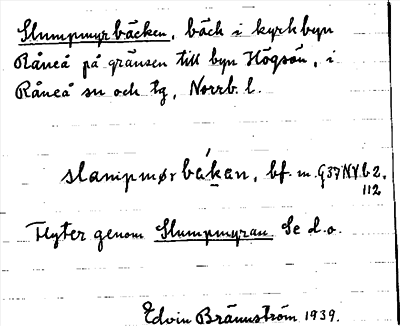 Slumpmyrbäcken, bäck i kyrkbyn
Råneå på gränsen till byn Högsön, i
Råneå sn och tg, Norrb. l.
slampmør bäkan, bf. m. G37 NV b 2.
112
Flyter genom Slumpmyran Se d.o.
Edvin Brännström 1939.